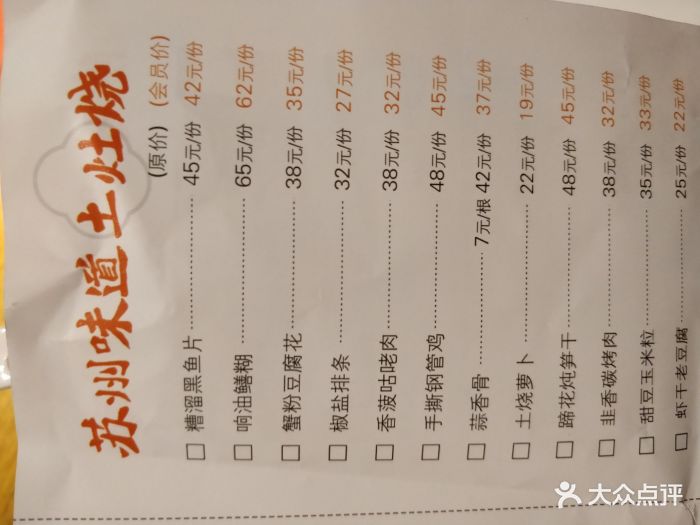 苏州味道土灶烧
(原价) (会员价)
糟溜黑鱼片 45元/份 42元/份
响油鳝糊 65元/份 62元/份
蟹粉豆腐花 38元/份 35元/份
椒盐排条 32元/份 27元/份
香菠咕咾肉 38元/份 32元/份
手撕钢管鸡 48元/份 45元/份
蒜香骨 7元/根 42元/份 37元/份
土烧萝卜 22元/份 19元/份
蹄花炖笋干 48元/份 45元/份
韭香碳烤肉 38元/份 32元/份
甜豆玉米粒 35元/份 33元/份
虾干老豆腐 25元/份 22元/份
大众点评